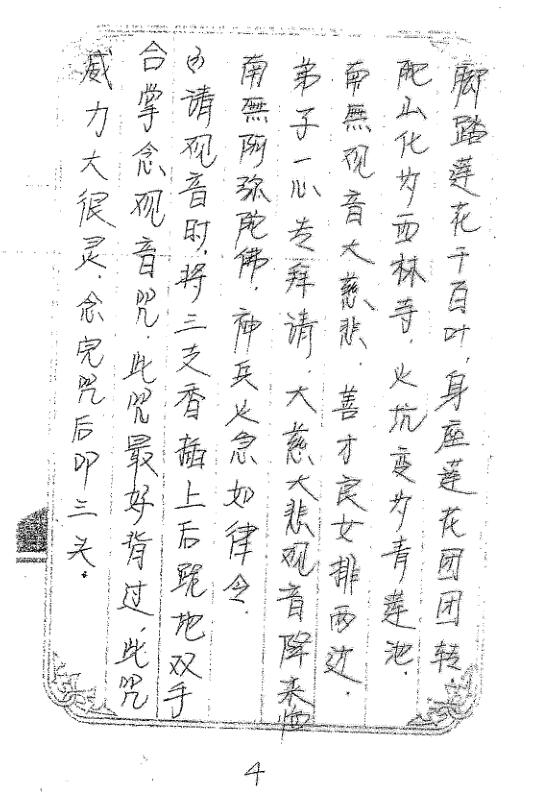 脚踏莲花千百叶，身座莲花团团转．
肥山化为西林寺．火坑变为青莲池．
南無观音大慈悲．善才良女排两边．
弟子一心专拜请．大慈大悲观音降来临
南無阿弥陀佛．神兵火急如律令．
请观音时，将三支香插上后跪地双手
合掌念观音咒．此咒最好背过．此咒
威力大很灵．念完咒后叩三头．
4